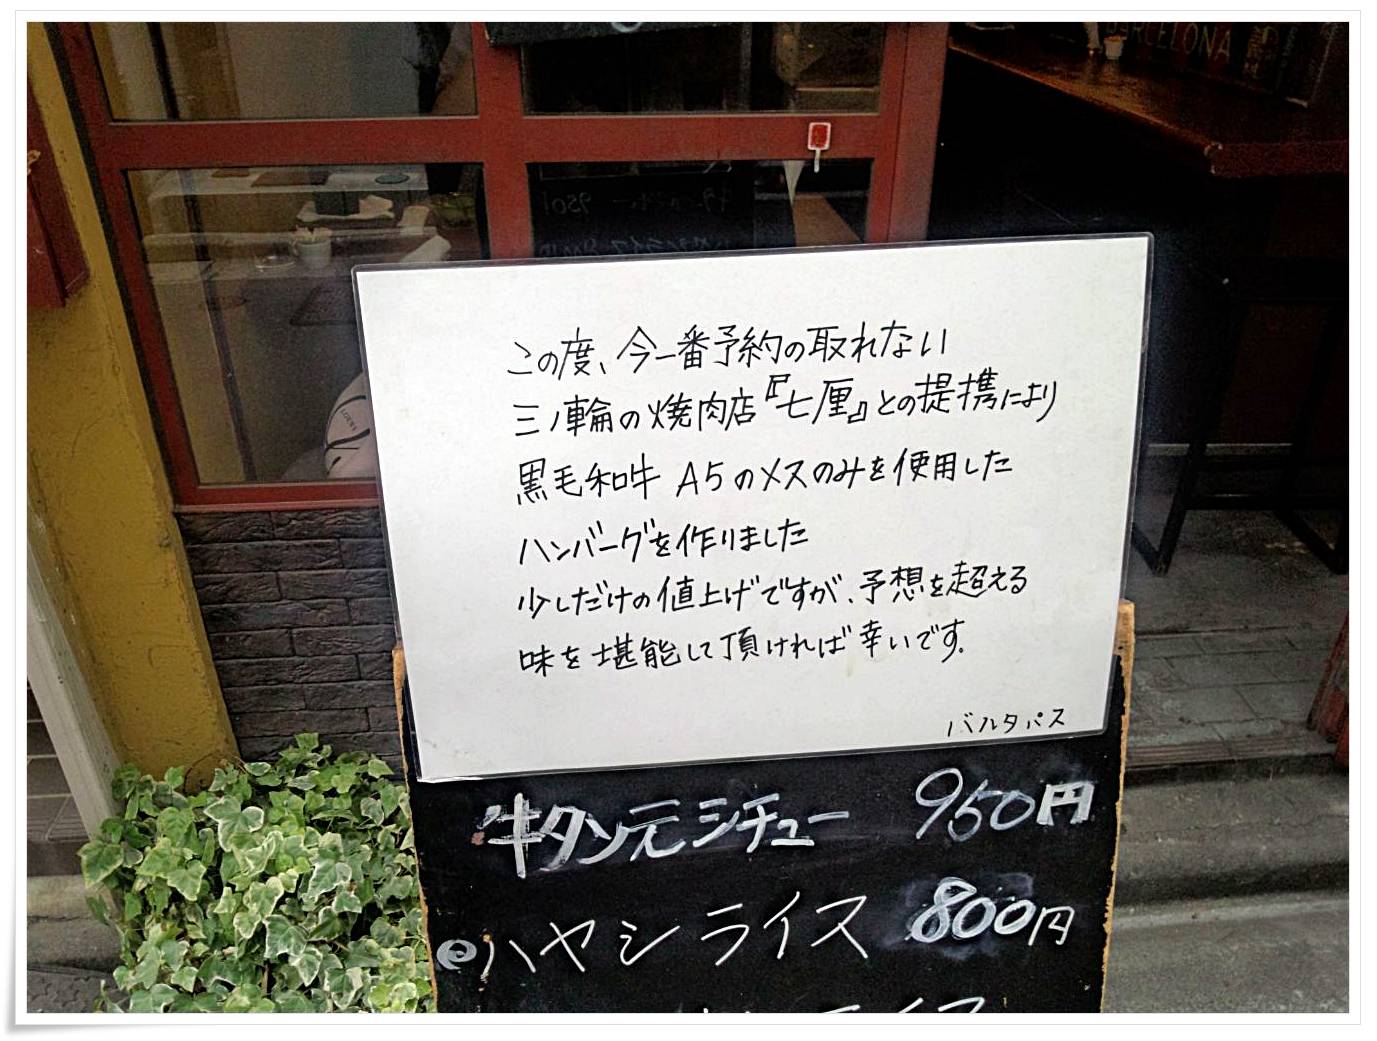 BARCELONA
この度、今一番予約の取れない
三ノ輪の焼肉店『七厘』との提携により
黒毛和牛 A5のメスのみを使用した
ハンバーグを作りました
少しだけの値上げですが、予想を超える
味を堪能して頂ければ幸いです.
バルタパス
牛タン元シチュー 950円
ハヤシライス 800円